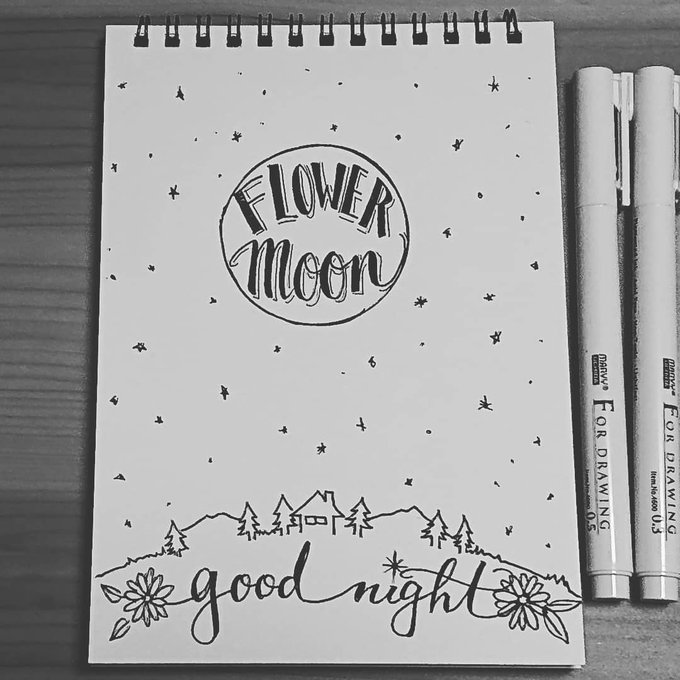 FLOWER
Moon
good night
MARVY
FOR DRAWING
Item.No.4600 0.5
MARVY
FOR DRAWING
Item.No.4600 0.3